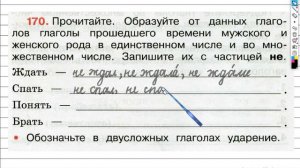 170. Прочитайте. Образуйте от данных глаго-
лов глаголы прошедшего времени мужского и
женского рода в единственном числе и во мно-
жественном числе. Запишите их с частицей не.
Ждать — не ждал, не ждала́, не жда́ли
Спать — не спал, не спа
Понять —
Брать —
• Обозначьте в двусложных глаголах ударение.